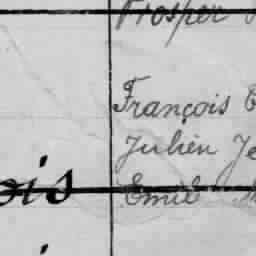 Prosper
François
Julien
ois
Emile